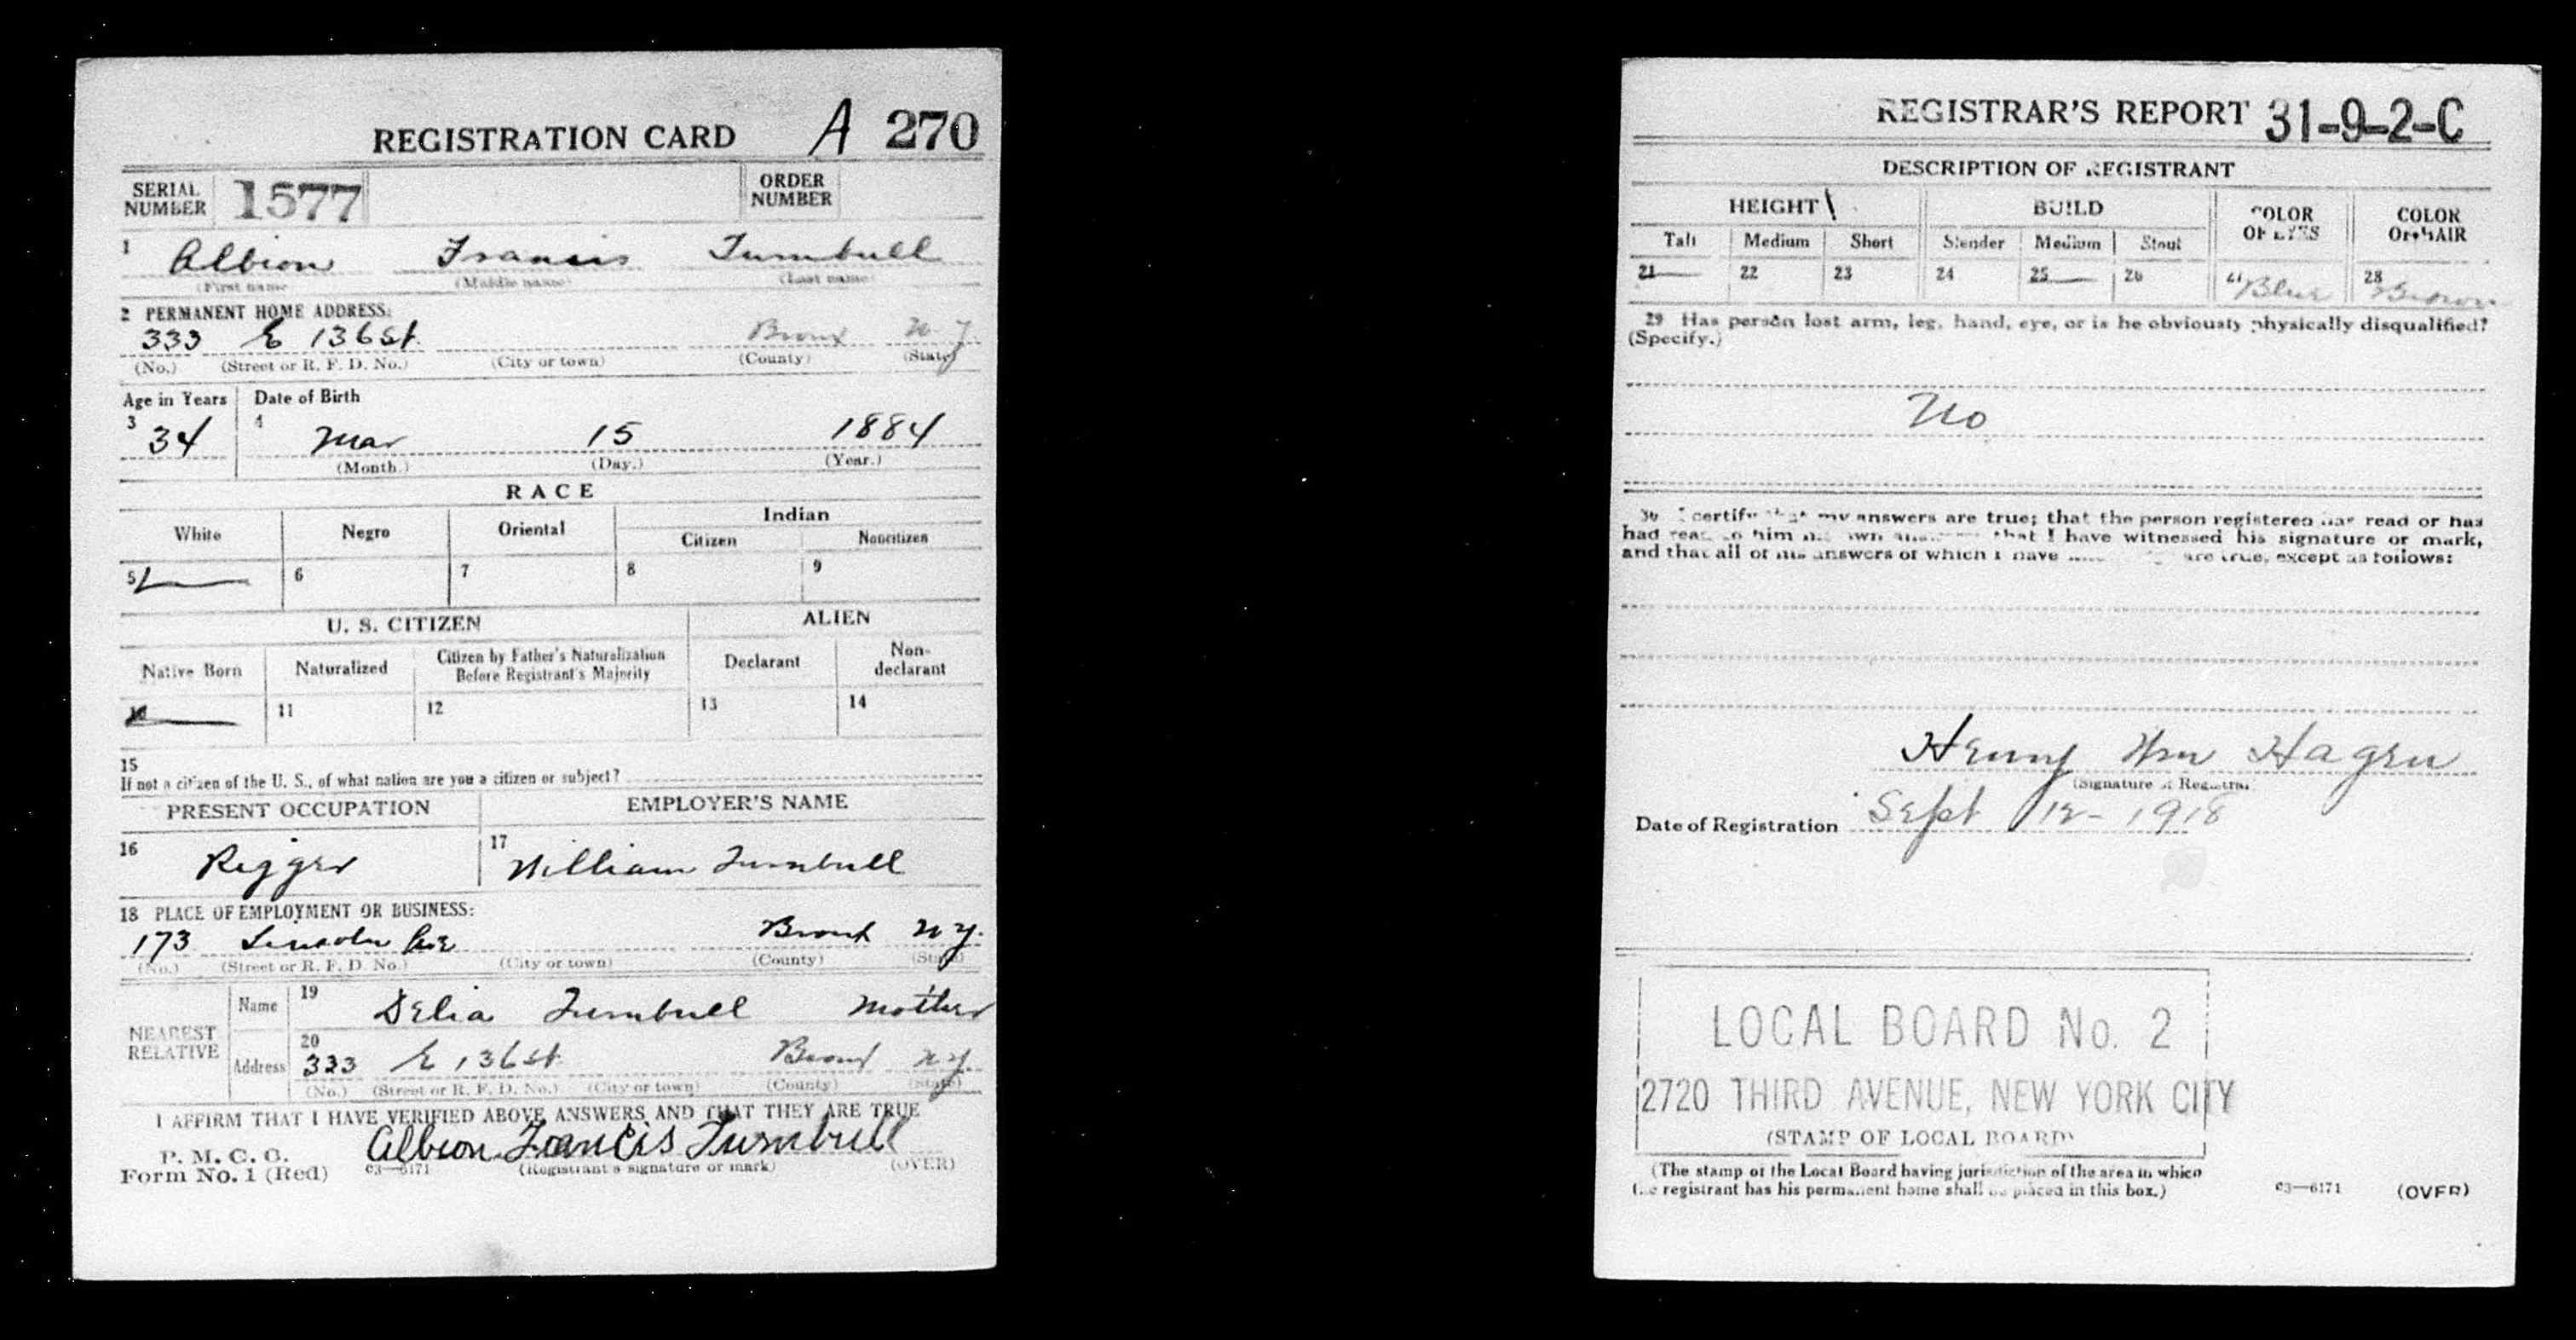 REGISTRATION CARD A 270
SERIAL NUMBER 1577 ORDER NUMBER
1 Albion Francis Turnbull
(First name) (Middle name) (Last name)
2 PERMANENT HOME ADDRESS:
333 E 136 St. Bronx N.Y.
(No.) (Street or R. F. D. No.) (City or town) (County) (State)
Age in Years Date of Birth
3 34 4 Mar 15 1884
(Month.) (Day.) (Year.)
RACE
White Negro Oriental Indian
Citizen Noncitizen
5 6 7 8 9
U. S. CITIZEN ALIEN
Native Born Naturalized Citizen by Father's Naturalization Before Registrant's Majority Declarant Non-declarant
10 11 12 13 14
15
If not a citizen of the U. S., of what nation are you a citizen or subject?
PRESENT OCCUPATION EMPLOYER'S NAME
16 Rigger 17 William Turnbull
18 PLACE OF EMPLOYMENT OR BUSINESS:
173 Lincoln Ave Bronx N.Y.
(No.) (Street or R. F. D. No.) (City or town) (County) (State)
NEAREST RELATIVE
Name 19 Delia Turnbull Mother
Address 20 333 E 136 St Bronx N.Y.
(No.) (Street or R. F. D. No.) (City or town) (County) (State)
I AFFIRM THAT I HAVE VERIFIED ABOVE ANSWERS AND THAT THEY ARE TRUE
P. M. G. O.
Form No. 1 (Red) c3—6171 Albion Francis Turnbull
(Registrant's signature or mark) (OVER)
REGISTRAR'S REPORT 31-9-2-C
DESCRIPTION OF REGISTRANT
HEIGHT BUILD COLOR OF EYES COLOR OF HAIR
Tall Medium Short Slender Medium Stout
21 22 23 24 25 26 27 Blue 28 Brown
29 Has person lost arm, leg, hand, eye, or is he obviously physically disqualified?
(Specify.)
No
30 I certify that my answers are true; that the person registered has read or has
had read to him his own answers; that I have witnessed his signature or mark,
and that all of his answers of which I have are true, except as follows:
Henry Wm Hagen
(Signature of Registrar)
Date of Registration Sept 12 - 1918
LOCAL BOARD No. 2
2720 THIRD AVENUE, NEW YORK CITY
(STAMP OF LOCAL BOARD)
(The stamp of the Local Board having jurisdiction of the area in which
the registrant has his permanent home shall be placed in this box.)
c3—6171 (OVER)